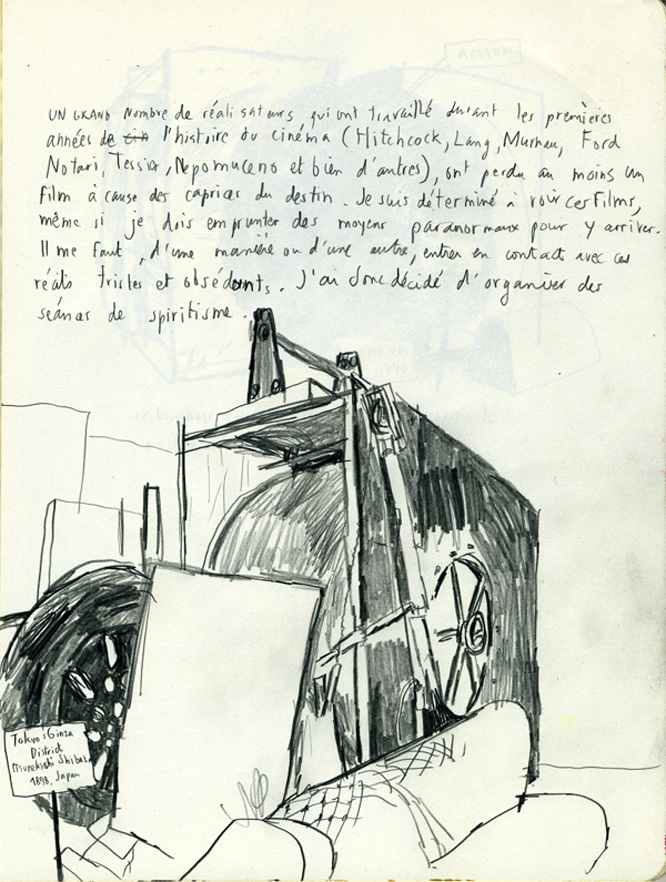 UN GRAND Nombre de réalisateurs, qui ont travaillé durant les premières
années de l'histoire du cinéma (Hitchcock, Lang, Murnau, Ford
Notari, Tessier, Nepomuceno et bien d'autres), ont perdu au moins un
film à cause des caprices du destin. Je suis déterminé à voir ces films,
même si je dois emprunter des moyens paranormaux pour y arriver.
Il me faut, d'une manière ou d'une autre, entrer en contact avec ces
réals tristes et obsédants. J'ai donc décidé d'organiser des
séances de spiritisme.
Tokyo's Ginza
District
Tsunekichi Shibata
1898, Japan